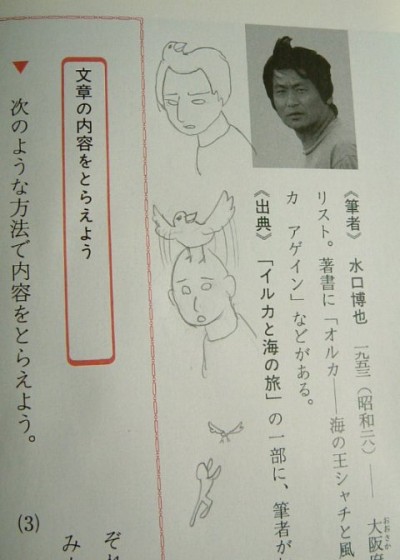 《筆者》 水口博也 一九五三(昭和二八)―― 大阪府
リスト。著書に「オルカ――海の王シャチと風
カ アゲイン」などがある。
《出典》 「イルカと海の旅」の一部に、筆者が
文章の内容をとらえよう
▼ 次のような方法で内容をとらえよう。
(3)
ぞれ
み